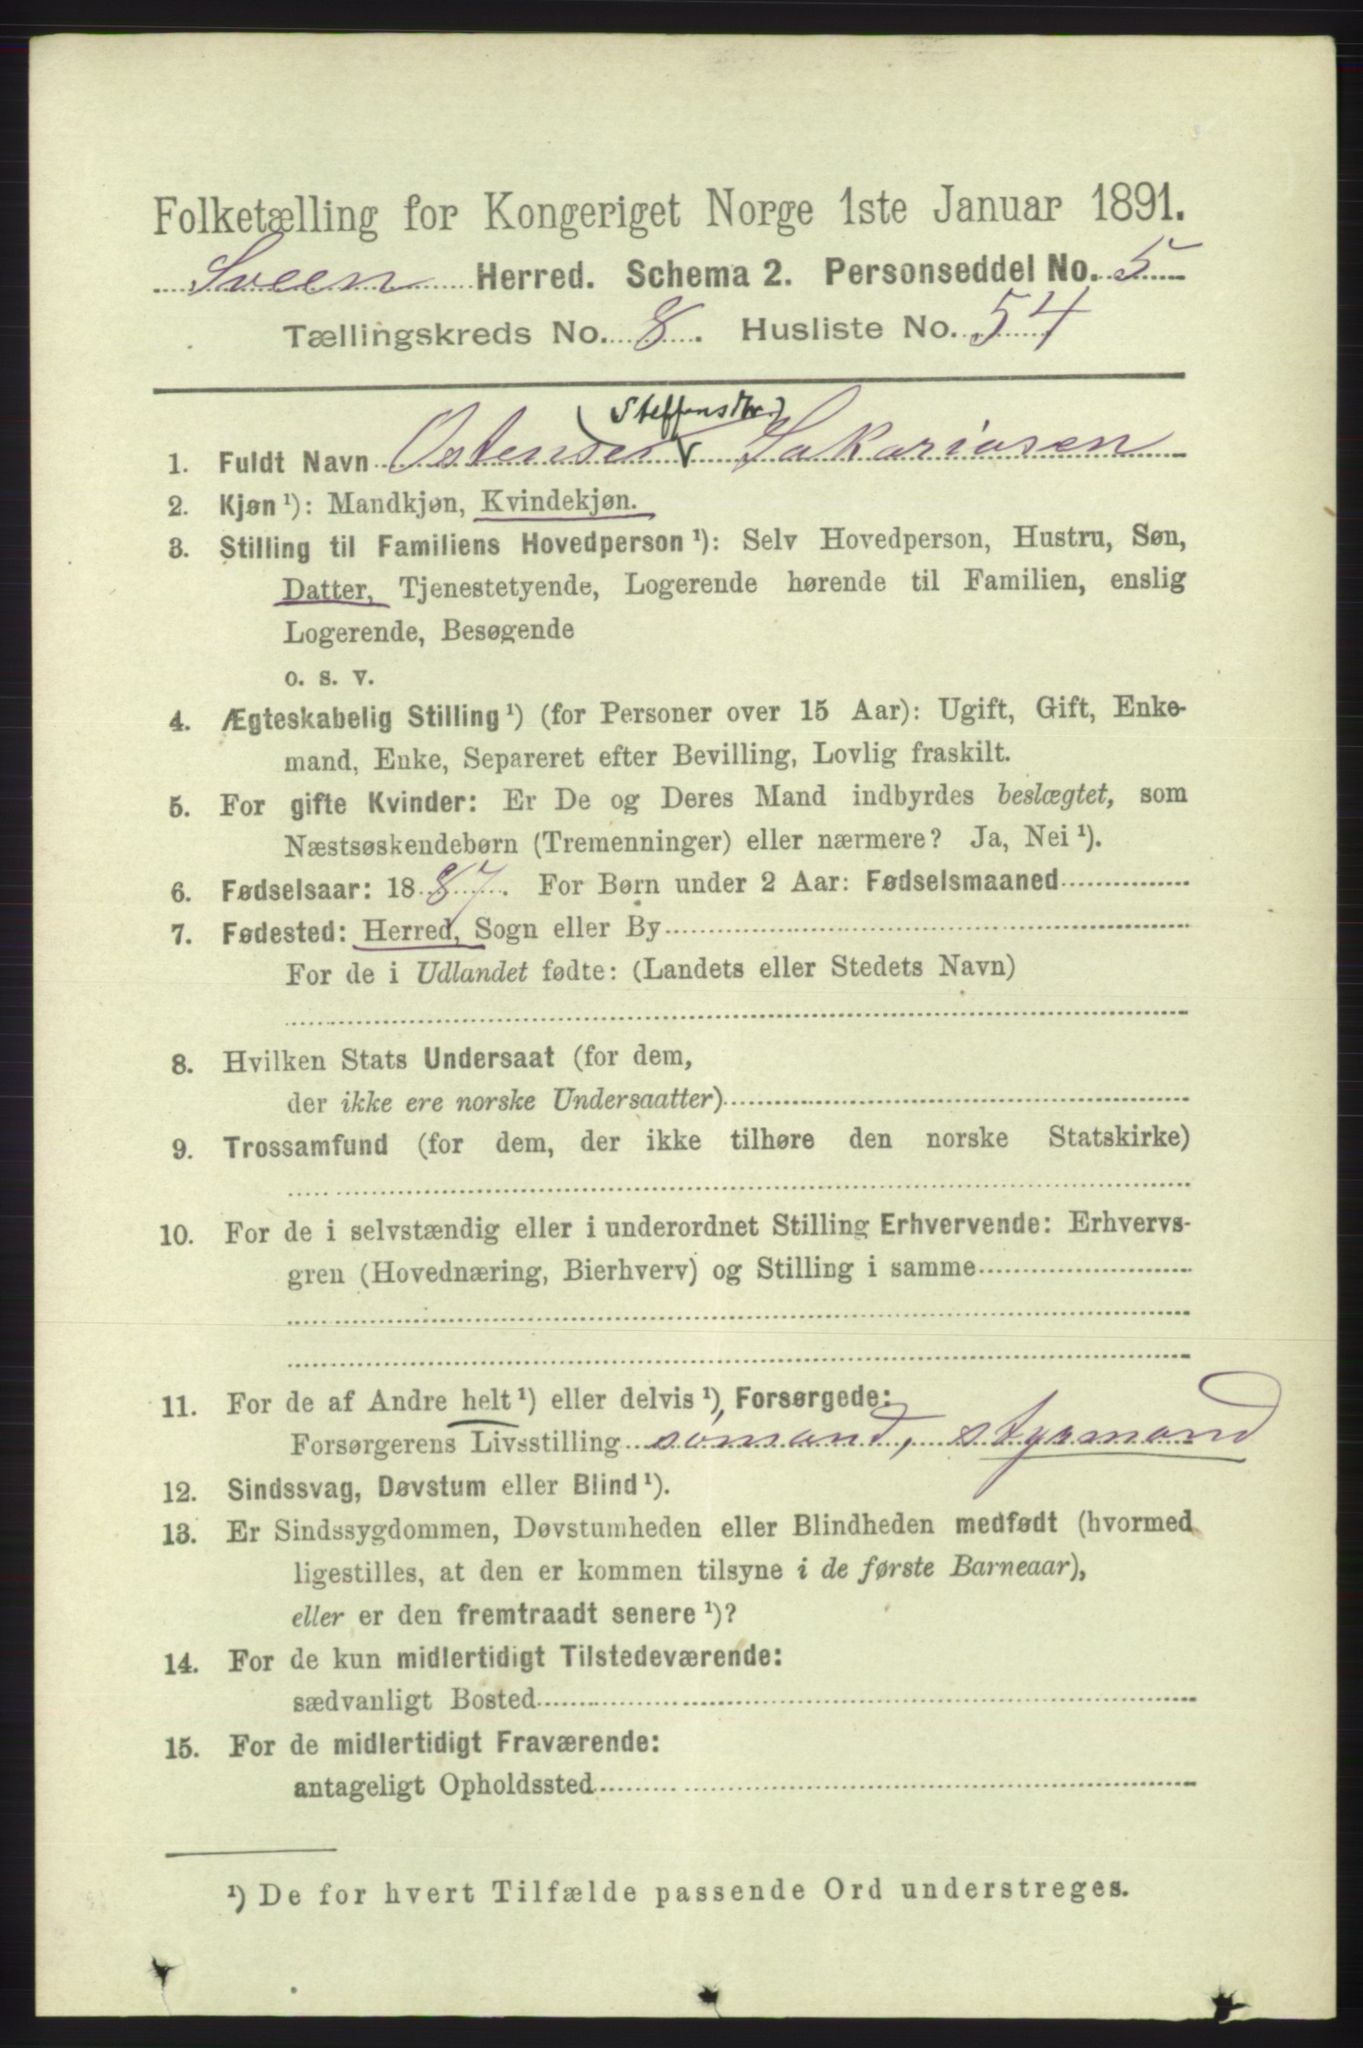 Folketælling for Kongeriget Norge 1ste Januar 1891.
Sveen Herred. Schema 2. Personseddel No. 5
Tællingskreds No. 8. Husliste No. 54
1. Fuldt Navn Ostense Sakariasen
2. Kjøn ¹): Mandkjøn, Kvindekjøn.
3. Stilling til Familiens Hovedperson ¹): Selv Hovedperson, Hustru, Søn,
Datter, Tjenestetyende, Logerende hørende til Familien, enslig
Logerende, Besøgende
o. s. v.
4. Ægteskabelig Stilling ¹) (for Personer over 15 Aar): Ugift, Gift, Enke-
mand, Enke, Separeret efter Bevilling, Lovlig fraskilt.
5. For gifte Kvinder: Er De og Deres Mand indbyrdes beslægtet, som
Næstsøskendebørn (Tremenninger) eller nærmere? Ja, Nei ¹).
6. Fødselsaar: 1887. For Børn under 2 Aar: Fødselsmaaned
7. Fødested: Herred, Sogn eller By
For de i Udlandet fødte: (Landets eller Stedets Navn)
8. Hvilken Stats Undersaat (for dem,
der ikke ere norske Undersaatter)
9. Trossamfund (for dem, der ikke tilhøre den norske Statskirke)
10. For de i selvstændig eller i underordnet Stilling Erhvervende: Erhvervs-
gren (Hovednæring, Bierhverv) og Stilling i samme
11. For de af Andre helt ¹) eller delvis ¹), Forsørgede:
Forsørgerens Livsstilling sømand, styrmand
12. Sindssvag, Døvstum eller Blind ¹).
13. Er Sindssygdommen, Døvstumheden eller Blindheden medfødt (hvormed
ligestilles, at den er kommen tilsyne i de første Barneaar),
eller er den fremtraadt senere ¹)?
14. For de kun midlertidigt Tilstedeværende:
sædvanligt Bosted
15. For de midlertidigt Fraværende:
antageligt Opholdssted
¹) De for hvert Tilfælde passende Ord understreges.